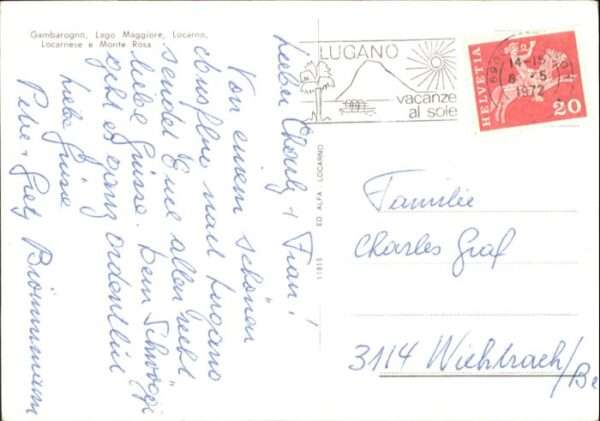 Gambarogno, Lago Maggiore, Locarno,
Locarnese e Monte Rosa
Lieber Charly + Frau!
Von einem schönen
Ausflug nach Lugano
sendet Eine allen recht
liebe Grüsse. Dem Schwöggi
geht es ganz ordentlich
Liebe Grüsse
Peter + Grety Brönnimann
11815 ED. ALFA LOCARNO
LUGANO
vacanze
al sole
14-15
8.-5
1972
HELVETIA
20
Familie
Charles Graf
3114 Wichtrach/Be